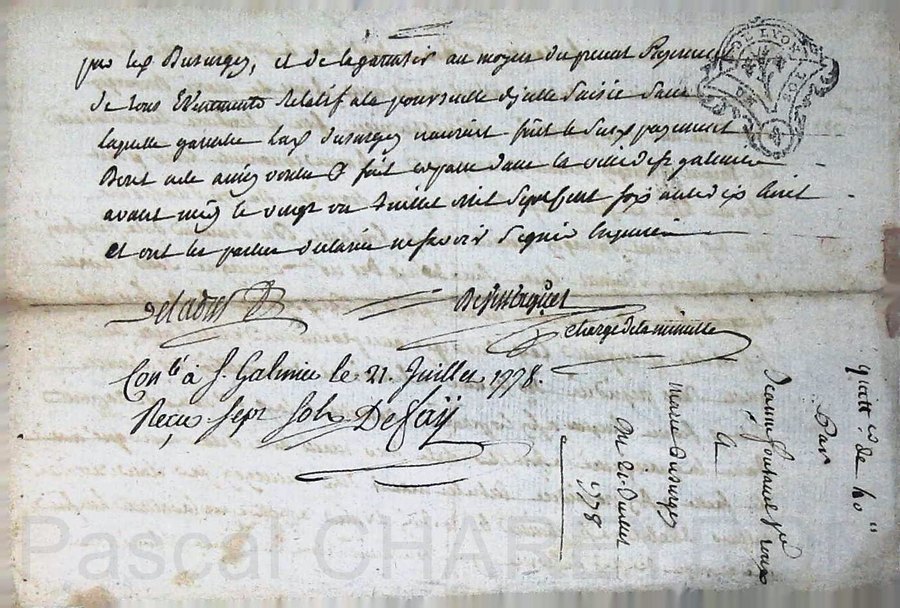 par lad Dusurgey, et de la garantir au moyen du present payement
de tous Evenements Relatif a la poursuitte de jalle Saisie Sans
laquelle garantie lad Dusurgey nauroit fait le Susd payement
Dont acte ainsy voulu & fait et passé dans la ville de St galmier
avant midy le vingt un Juillet Mil Sept Cent soixante dix huit
et ont les parties declarée ne sçavoir Signer Enquises
chargé de la minute
Con.lé à S. Galmier le 21. Juillet 1778.
Reçu Sept sols Defaÿ
quitt.ce de 40 ll
Par
Jeanne
A
Marie Dusurgey
Du 21 Juillet
1778
DE LYON
Pascal CHAREYRON